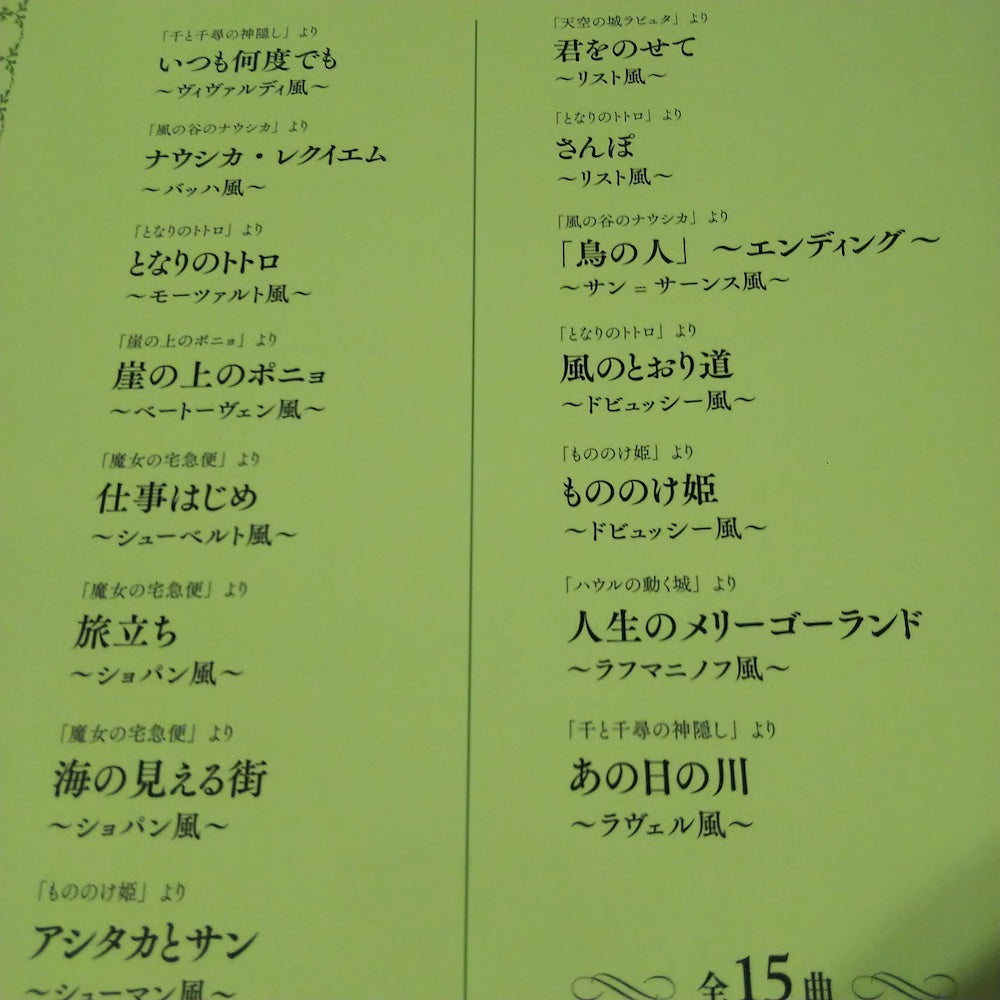 「千と千尋の神隠し」より
いつも何度でも
～ヴィヴァルディ風～
「風の谷のナウシカ」より
ナウシカ・レクイエム
～バッハ風～
「となりのトトロ」より
となりのトトロ
～モーツァルト風～
「崖の上のポニョ」より
崖の上のポニョ
～ベートーヴェン風～
「魔女の宅急便」より
仕事はじめ
～シューベルト風～
「魔女の宅急便」より
旅立ち
～ショパン風～
「魔女の宅急便」より
海の見える街
～ショパン風～
「もののけ姫」より
アシタカとサン
～シューマン風～
「天空の城ラピュタ」より
君をのせて
～リスト風～
「となりのトトロ」より
さんぽ
～リスト風～
「風の谷のナウシカ」より
「鳥の人」～エンディング～
～サン＝サーンス風～
「となりのトトロ」より
風のとおり道
～ドビュッシー風～
「もののけ姫」より
もののけ姫
～ドビュッシー風～
「ハウルの動く城」より
人生のメリーゴーランド
～ラフマニノフ風～
「千と千尋の神隠し」より
あの日の川
～ラヴェル風～
全15曲